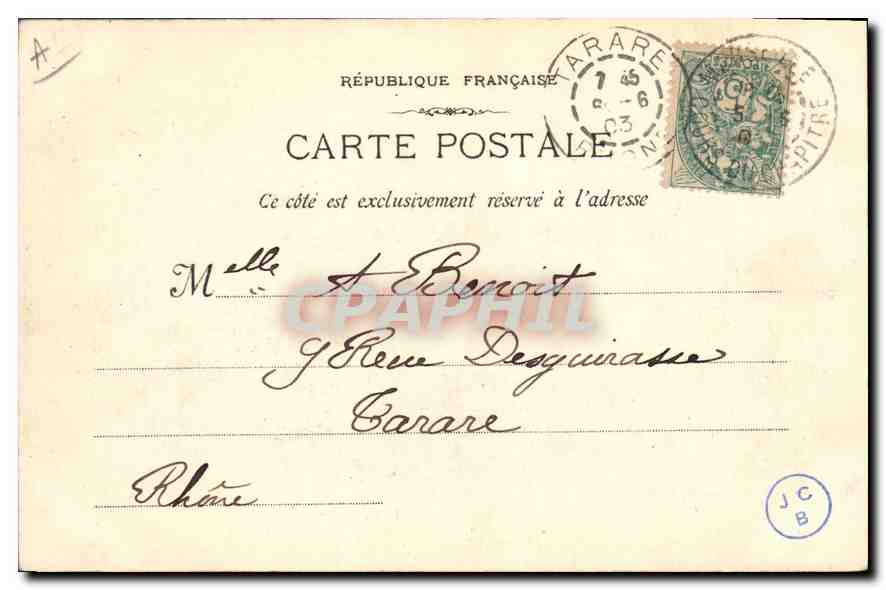 A
TARARE
7 45
8 - 6
03
RHONE
PITRE
RÉPUBLIQUE FRANÇAISE
CARTE POSTALE
Ce côté est exclusivement réservé à l'adresse
Melle A Benoit
CPAPHIL
9 Reue Desguirasse
Tarare
Rhône
J C
B